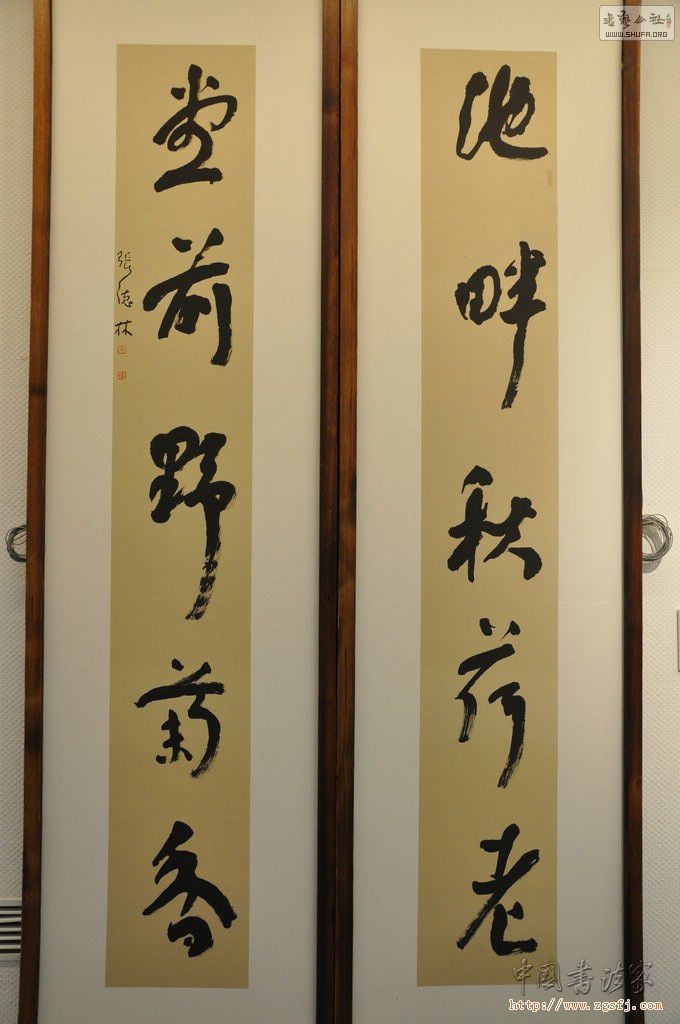 池畔秋荷老
堂前野菊香
張德林
書藝公社
WWW.SHUFA.ORG
中國書法家
http://www.zgsfj.com